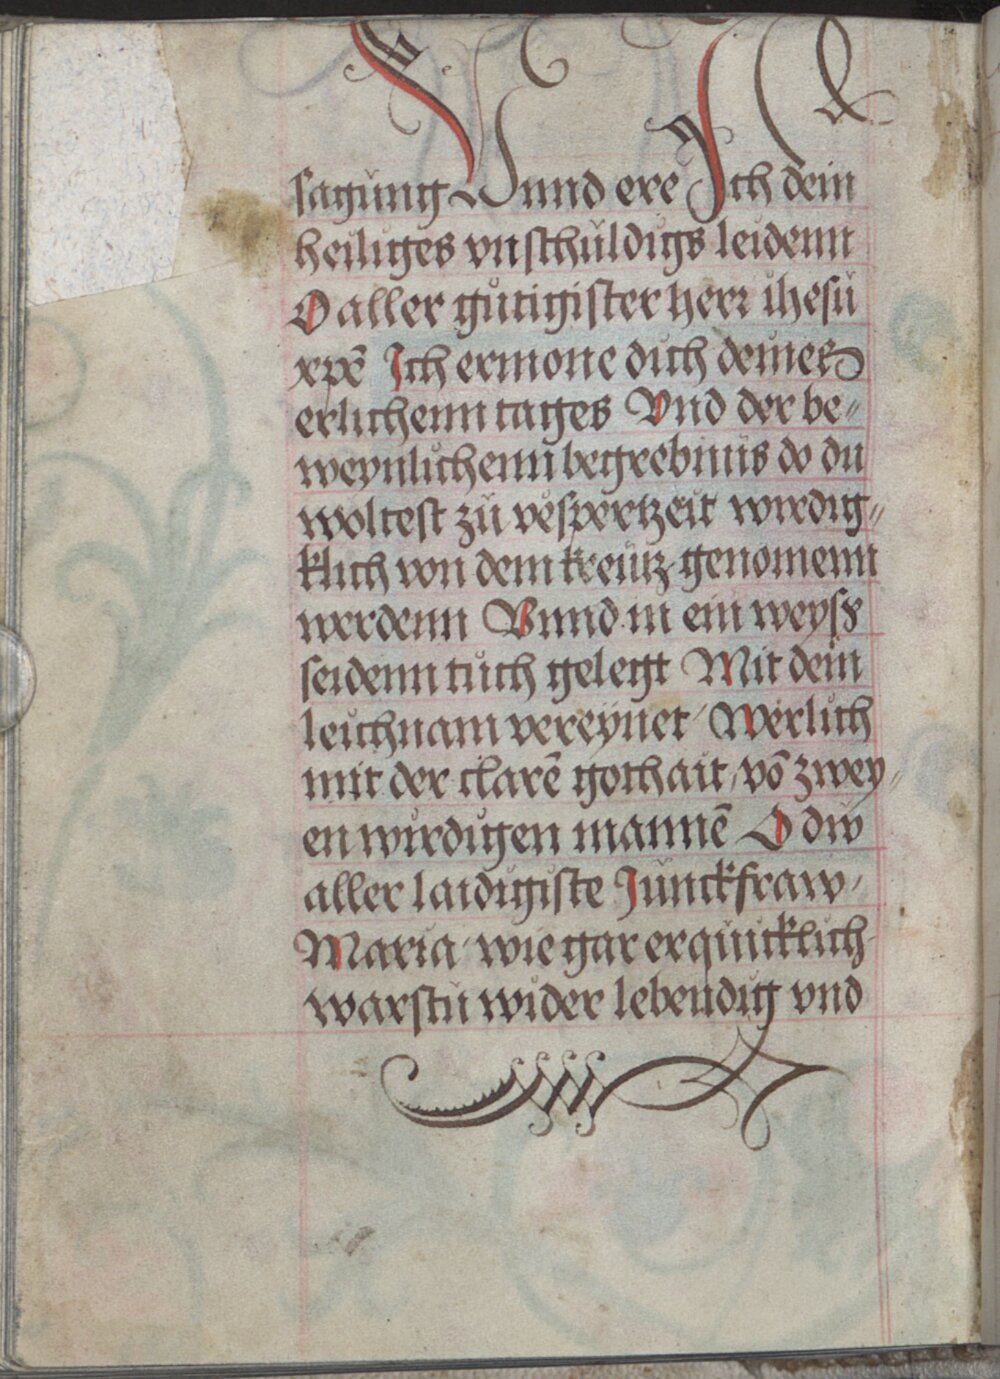 sagung Vnnd ere Ich dein
heiliges vnschuldigs leidenn
O aller gutigister herr ihesu
xpē Ich ermone dich deines
erlichenn tages Vnd der be=
weynlichenn begrebnus do du
woltest zu vespertzeit wirdig=
klich von dem kreutz genomenn
werdenn Vnnd in ein weyss
seidenn tuch gelegt Mit dein
leichnam vereynet / Werlich
mit der clarē gothait / vō zwey=
en wirdigen mannē O diw
aller laidigiste Junckfraw /
Maria / wie gar erquicklich
warstu wider lebendig vnd